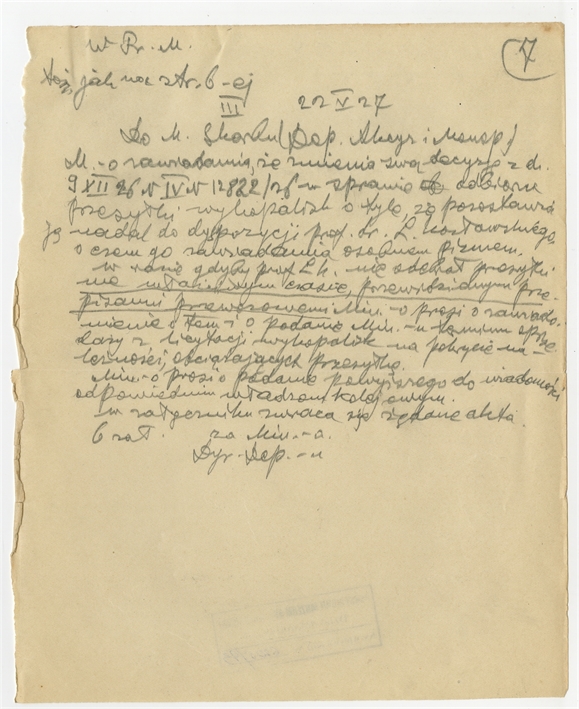 W Pr. M.
7
też, jak na str. 6-ej
III 22 V 27
Do M. Skarbu (Dep. Akcyz i Monop.)
M.-o zawiadamia, że zmienia swą decyzję z dn.
9 XII 26 N IV N 12822/26 w sprawie odbioru
przesyłki wykopalisk o tyle, że pozostawia
ją nadal do dyspozycji prof. Dr. L. Kozłowskiego,
o czem go zawiadamia osobnem pismem.
W razie gdyby prof. L. K. nie odebrał przesyłki
we właściwym czasie, przewidzianym prze-
pisami przewozowemi Min.-o prosi o zawiado-
mienie o tem i o podanie Min.-u terminu sprze-
daży z licytacji wykopalisk na pokrycie na-
leżności, obciążających przesyłkę.
Min.-o prosi o podanie powyższego do wiadomości
odpowiednim władzom kolejowym.
W załączniku zwraca się żądane akta.
6 zał. za Min.-a.
Dyr. Dep.-u